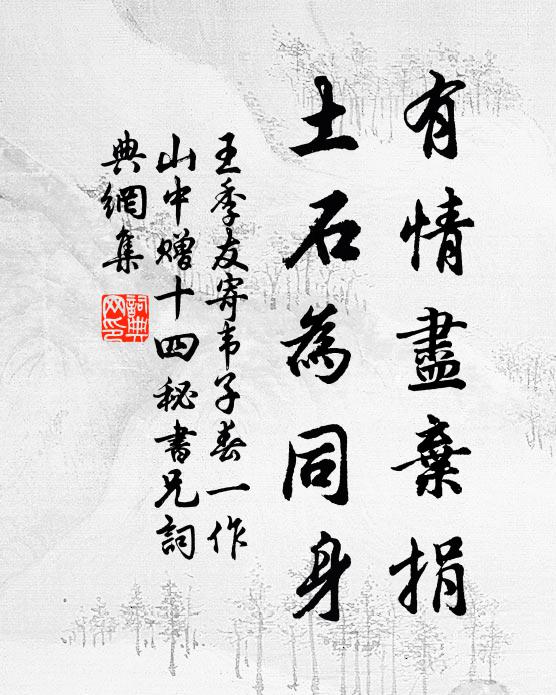 有情盡棄捐
土石為同身
王季友寄韦子春一作
山中赠十四秘書兄詞
典網集
詞典
网印